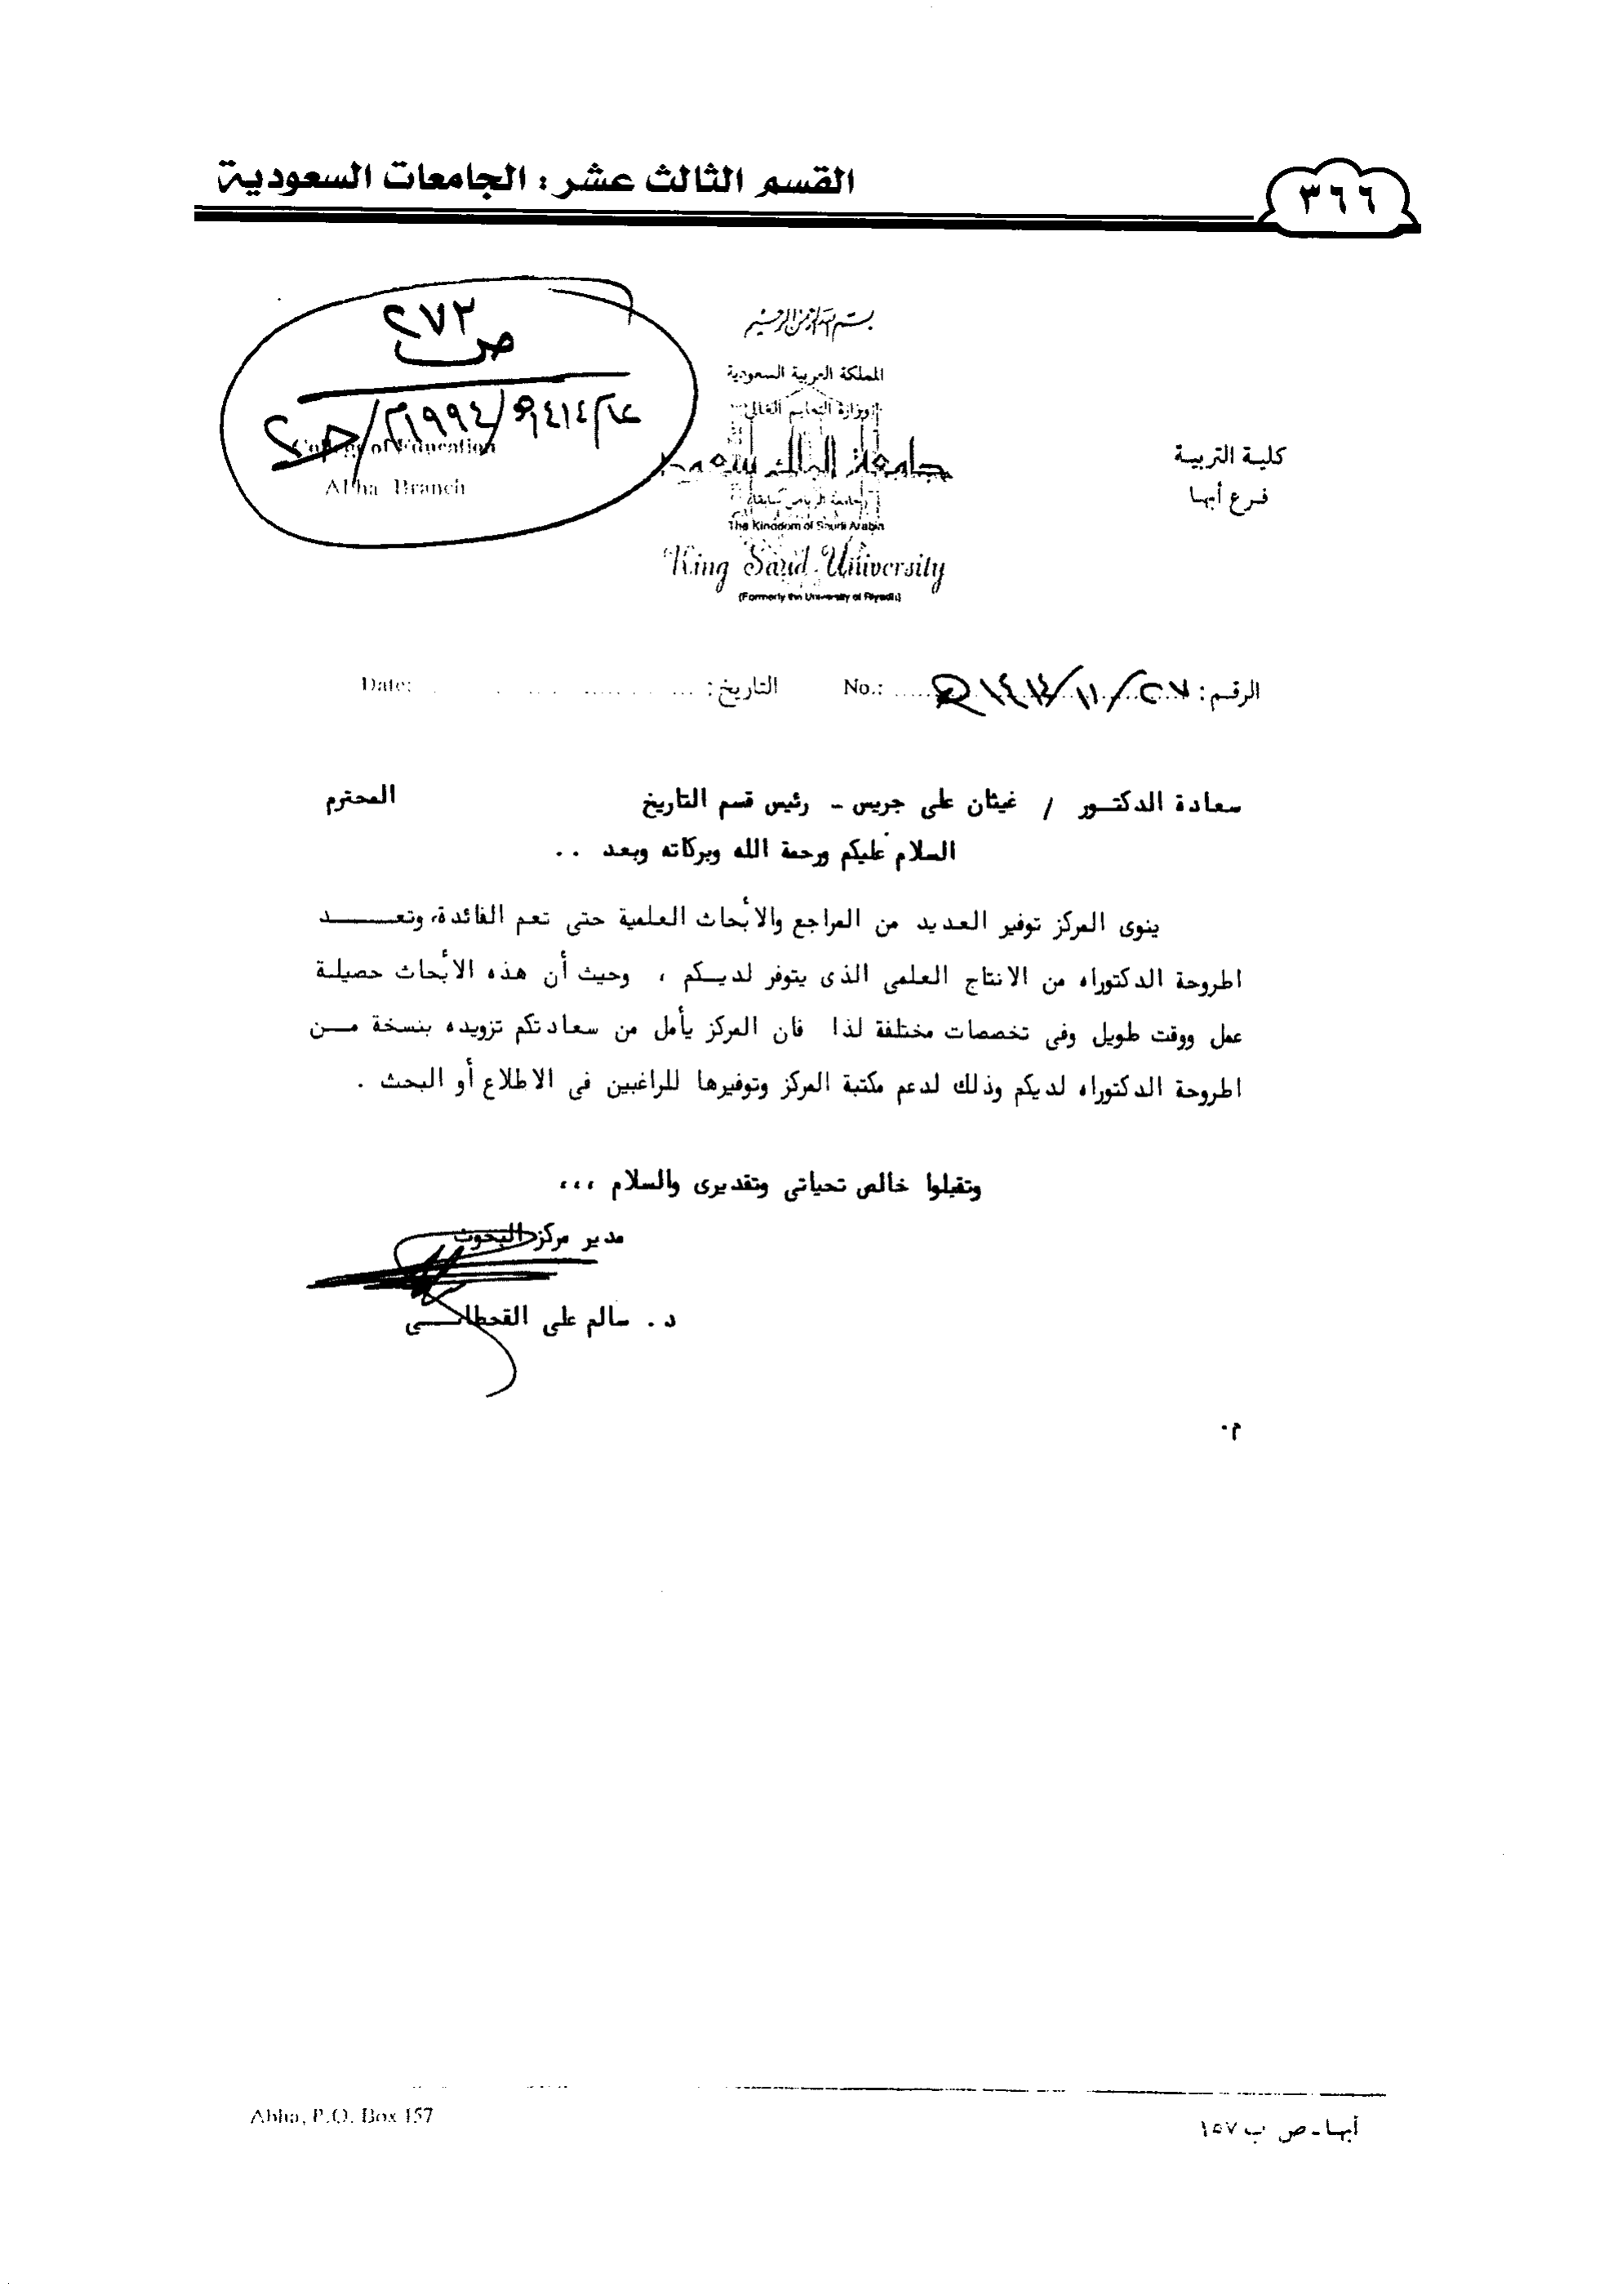 القسم الثالث عشر : الجامعات السعودية
٣٦٦
٢٧٣
ص
١٤١٤هـ/١٩٩٤م/
بسم الله الرحمن الرحيم
المملكة العربية السعودية
وزارة التعليم العالي
جامعة الملك سعود
(جامعة الرياض سابقا)
The Kingdom of Saudi Arabia
King Saud University
(Formerly the University of Riyadh)
كلية التربية
فرع أبها
College of Education
Abha Branch
الرقم : ٢٧/١١/١٤١٤هـ No.:
التاريخ : Date:
سعادة الدكتــور / غيثان على جريس - رئيس قسم التاريخ المحترم
السلام عليكم ورحمة الله وبركاته وبعد ..
ينوى المركز توفير العديد من المراجع والأبحاث العلمية حتى تعم الفائدة، وتعــــد
اطروحة الدكتوراه من الانتاج العلمى الذى يتوفر لديــكم ، وحيث أن هذه الأبحاث حصيلة
عمل ووقت طويل وفى تخصصات مختلفة لذا فان المركز يأمل من سعادتكم تزويده بنسخة مــن
اطروحة الدكتوراه لديكم وذلك لدعم مكتبة المركز وتوفيرها للراغبين فى الاطلاع أو البحث .
وتقبلوا خالص تحياتى وتقديرى والسلام ،،،
مدير مركز البحوث
د . سالم على القحطانــى
م.
أبها - ص ب ١٥٧
Abha, P.O. Box 157